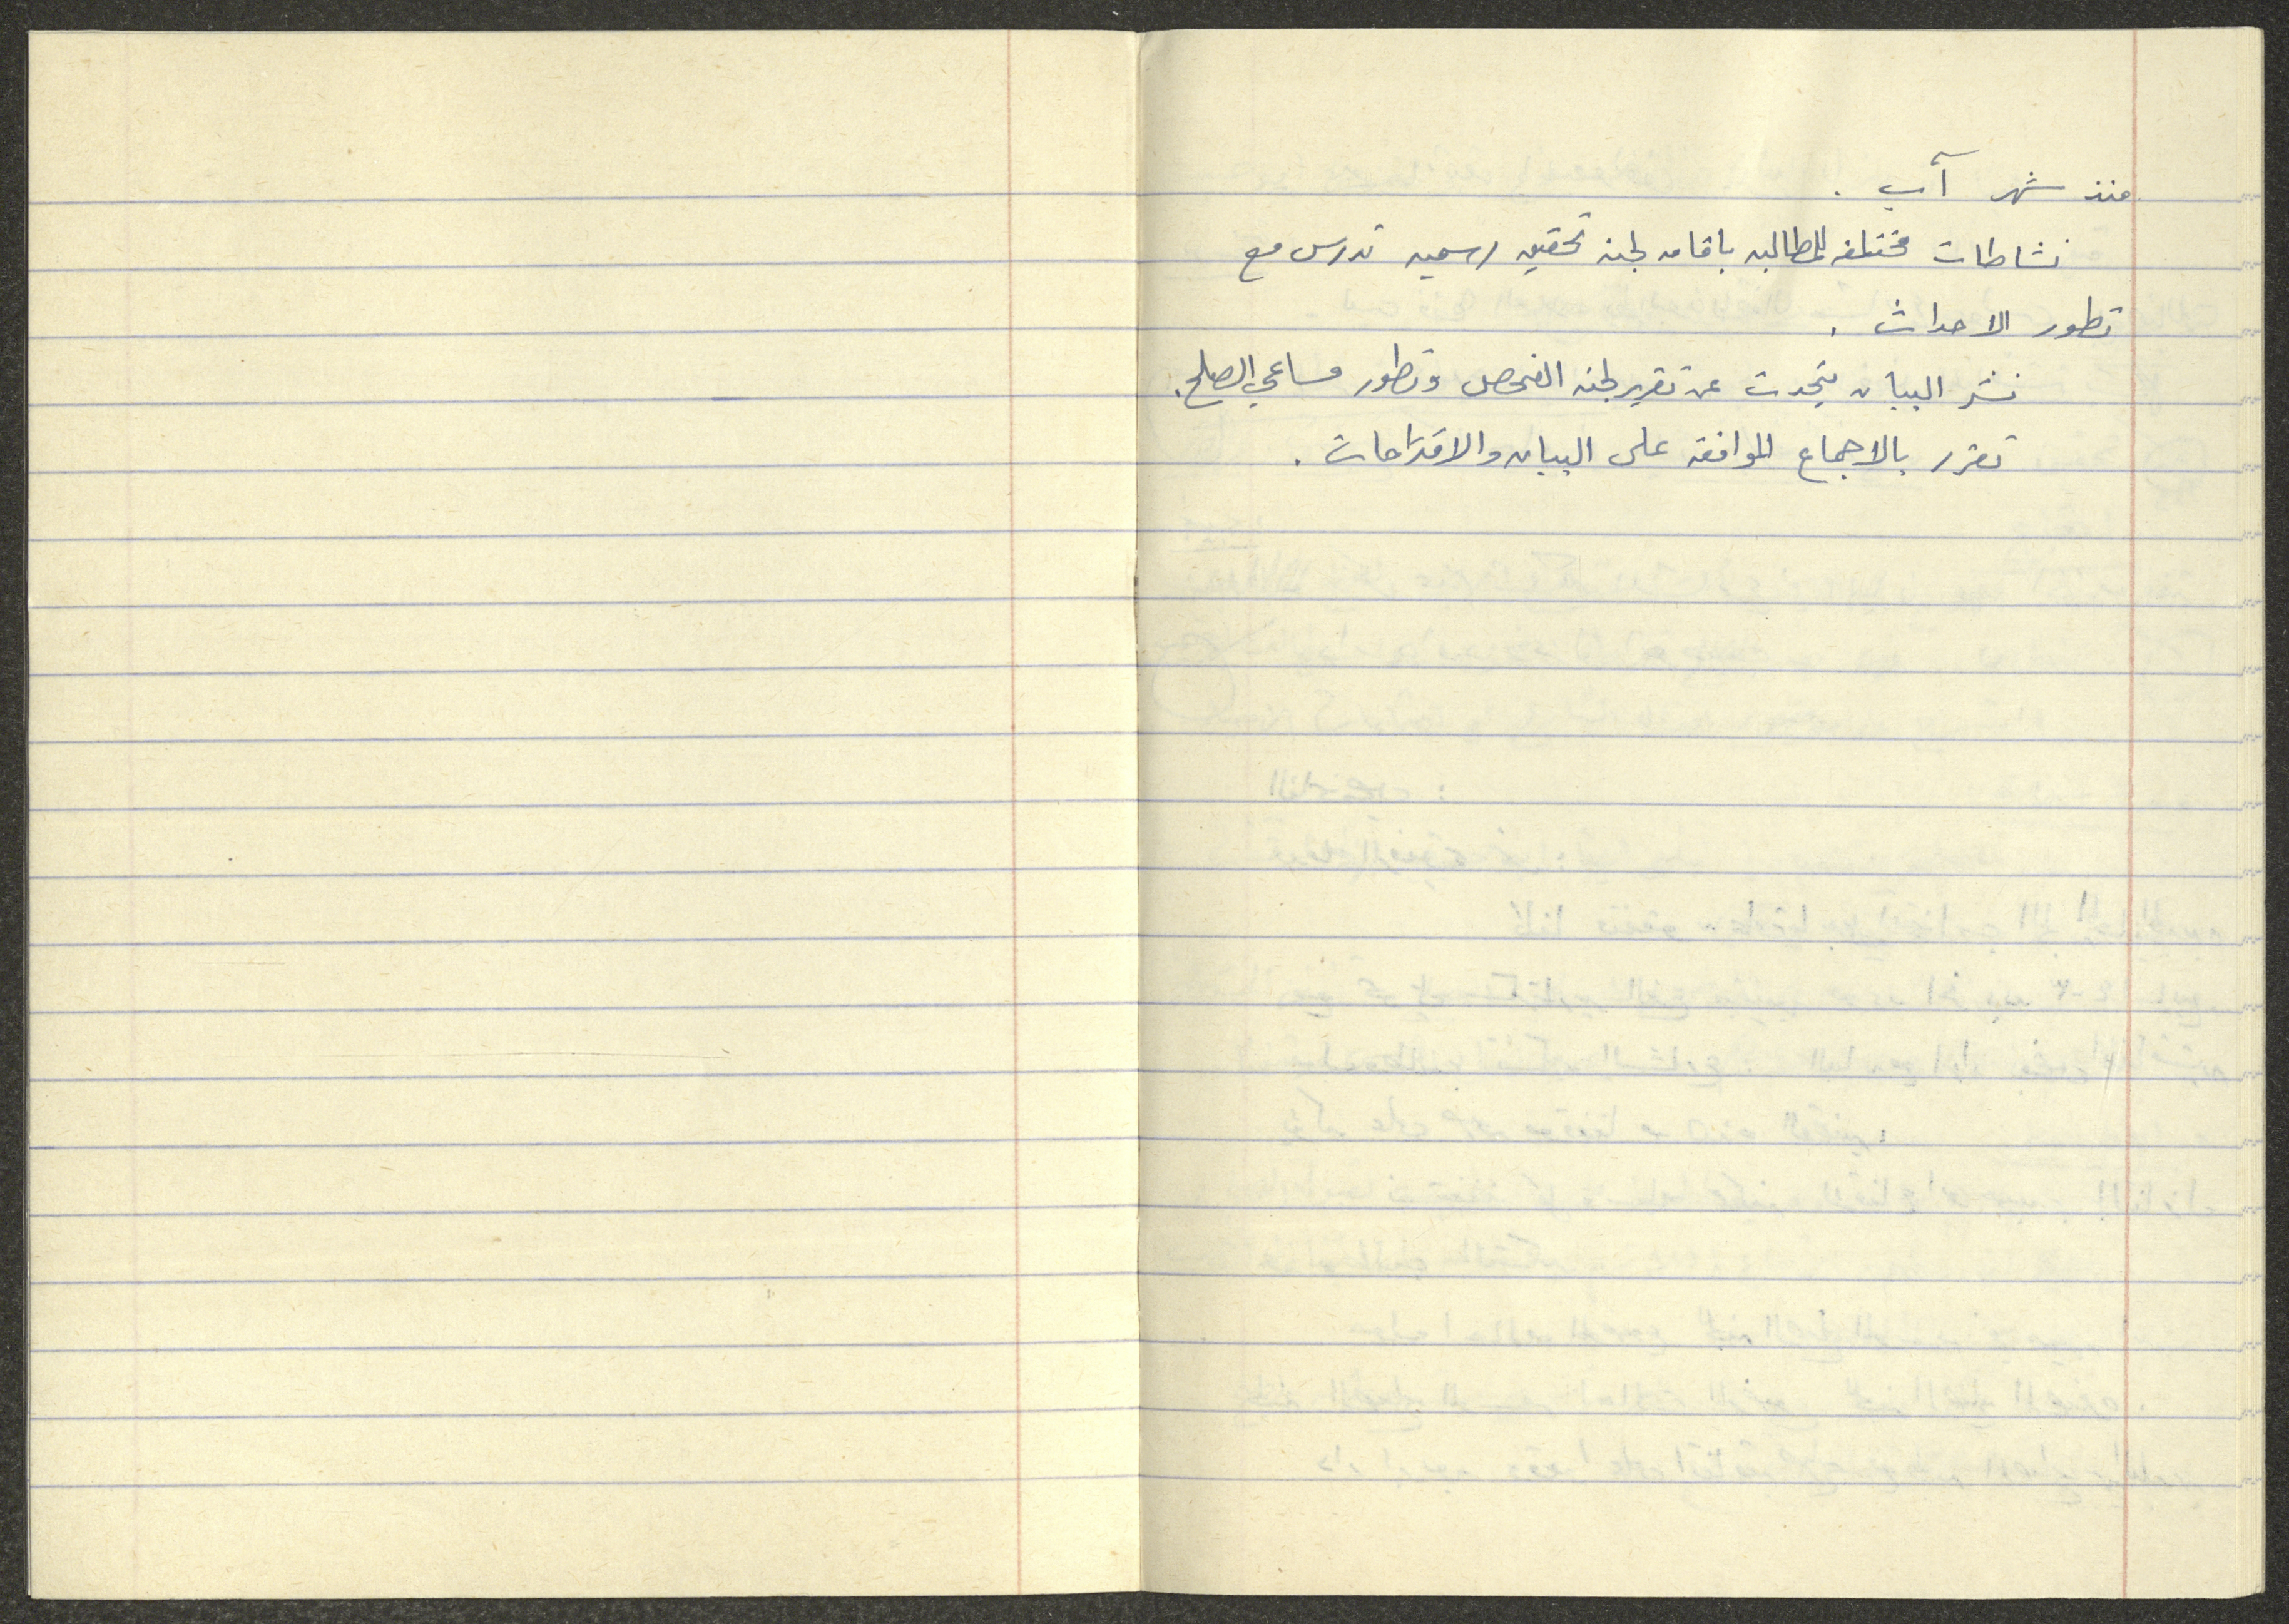 منذ شهر آب .
نشاطات مختلفه للمطالبه باقامه لجنه تحقيق رسميه تدرس مع
تطور الاحداث .
نشر البيان يتحدث عن تقرير لجنه الفحص وتطور مساعي الصلح .
تقرر بالاجماع الموافقه على البيان والاقتراحات .